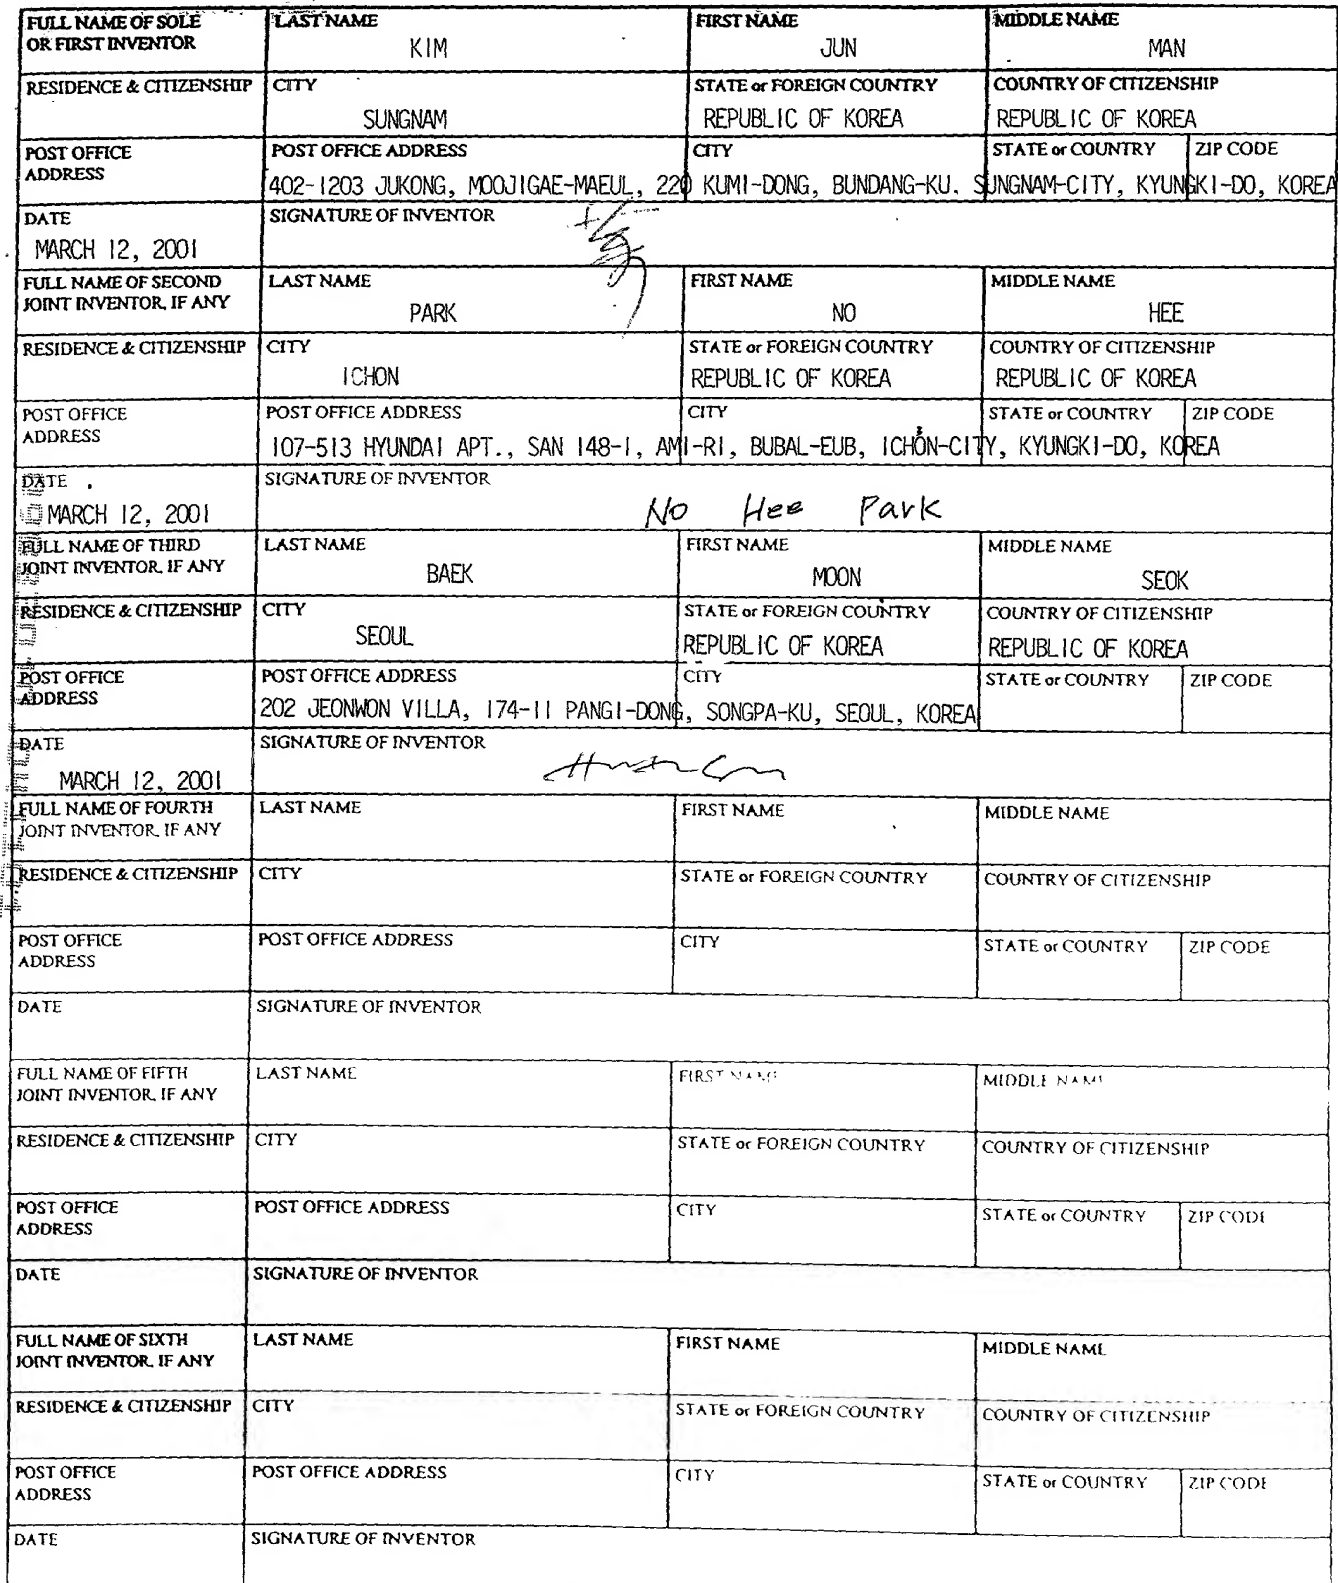 FULL NAME OF SOLE OR FIRST INVENTOR
LAST NAME
KIM
FIRST NAME
JUN
MIDDLE NAME
MAN
RESIDENCE & CITIZENSHIP
CITY
SUNGNAM
STATE or FOREIGN COUNTRY
REPUBLIC OF KOREA
COUNTRY OF CITIZENSHIP
REPUBLIC OF KOREA
POST OFFICE ADDRESS
POST OFFICE ADDRESS
CITY
STATE or COUNTRY
ZIP CODE
402-1203 JUKONG, MOOJIGAE-MAEUL, 220 KUMI-DONG, BUNDANG-KU. SUNGNAM-CITY, KYUNGKI-DO, KOREA
DATE
MARCH 12, 2001
SIGNATURE OF INVENTOR
FULL NAME OF SECOND JOINT INVENTOR, IF ANY
LAST NAME
PARK
FIRST NAME
NO
MIDDLE NAME
HEE
RESIDENCE & CITIZENSHIP
CITY
ICHON
STATE or FOREIGN COUNTRY
REPUBLIC OF KOREA
COUNTRY OF CITIZENSHIP
REPUBLIC OF KOREA
POST OFFICE ADDRESS
POST OFFICE ADDRESS
CITY
STATE or COUNTRY
ZIP CODE
107-513 HYUNDAI APT., SAN 148-1, AMI-RI, BUBAL-EUB, ICHON-CITY, KYUNGKI-DO, KOREA
DATE
MARCH 12, 2001
SIGNATURE OF INVENTOR
No Hee Park
FULL NAME OF THIRD JOINT INVENTOR, IF ANY
LAST NAME
BAEK
FIRST NAME
MOON
MIDDLE NAME
SEOK
RESIDENCE & CITIZENSHIP
CITY
SEOUL
STATE or FOREIGN COUNTRY
REPUBLIC OF KOREA
COUNTRY OF CITIZENSHIP
REPUBLIC OF KOREA
POST OFFICE ADDRESS
POST OFFICE ADDRESS
CITY
STATE or COUNTRY
ZIP CODE
202 JEONWON VILLA, 174-11 PANGI-DONG, SONGPA-KU, SEOUL, KOREA
DATE
MARCH 12, 2001
SIGNATURE OF INVENTOR
FULL NAME OF FOURTH JOINT INVENTOR, IF ANY
LAST NAME
FIRST NAME
MIDDLE NAME
RESIDENCE & CITIZENSHIP
CITY
STATE or FOREIGN COUNTRY
COUNTRY OF CITIZENSHIP
POST OFFICE ADDRESS
POST OFFICE ADDRESS
CITY
STATE or COUNTRY
ZIP CODE
DATE
SIGNATURE OF INVENTOR
FULL NAME OF FIFTH JOINT INVENTOR, IF ANY
LAST NAME
FIRST NAME
MIDDLE NAME
RESIDENCE & CITIZENSHIP
CITY
STATE or FOREIGN COUNTRY
COUNTRY OF CITIZENSHIP
POST OFFICE ADDRESS
POST OFFICE ADDRESS
CITY
STATE or COUNTRY
ZIP CODE
DATE
SIGNATURE OF INVENTOR
FULL NAME OF SIXTH JOINT INVENTOR, IF ANY
LAST NAME
FIRST NAME
MIDDLE NAME
RESIDENCE & CITIZENSHIP
CITY
STATE or FOREIGN COUNTRY
COUNTRY OF CITIZENSHIP
POST OFFICE ADDRESS
POST OFFICE ADDRESS
CITY
STATE or COUNTRY
ZIP CODE
DATE
SIGNATURE OF INVENTOR